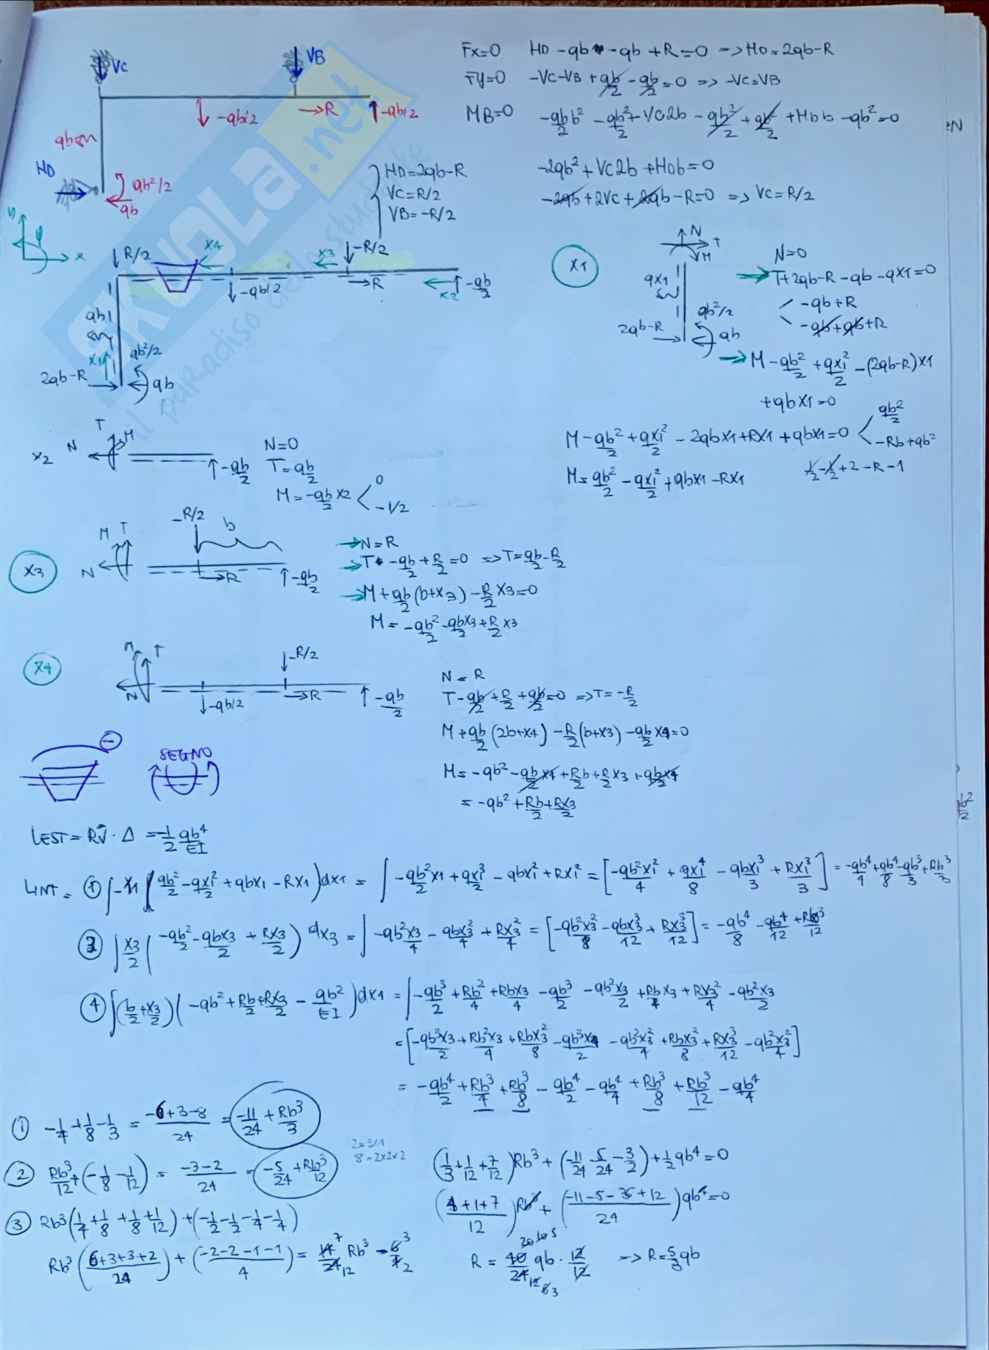 VC
VB
Fx=0 HD -qb -qb +R=0 => HD=2qb-R
Fy=0 -VC-VB +qb/2 -qb/2=0 => -VC=VB
MB=0 -qb/2 b² -qb²/2 +VC2b -qb²/2 +qb²/2 +HDb -qb²=0
-2qb² +VC2b +HDb=0
-2qb+2VC+2qb-R=0 => VC=R/2
qb
-qb/2
R
-qb/2
HD
qb²/2
qb
HD=2qb-R
VC=R/2
VB=-R/2
SKUOLA.net
il paradiso dello studente
x
R/2
x4
x3
-R/2
-qb/2
R
x2
-qb/2
qb
x1
qb²/2
2qb-R
qb
X1
N
T
M
qx1
qb²/2
2qb-R
qb
N=0
T+2qb-R-qb-qx1=0
-qb+R
-qb+qb+R
M-qb²/2 +qx1²/2 -(2qb-R)x1
+qbx1=0
M-qb²/2 +qx1²/2 -2qbx1+Rx1+qbx1=0
qb²/2
-Rb+qb²
M=qb²/2 -qx1²/2 +qbx1-Rx1
1/2-1/2+2-R-1
x2
N
T
M
-qb/2
N=0
T=qb/2
M=-qb/2 x2
0
-1/2
X3
M T
N
-R/2
b
R
-qb/2
N=R
T -qb/2 +R/2=0 => T=qb/2-R/2
M+qb/2(b+x3)-R/2 x3=0
M=-qb²/2 -qbx3/2 +R/2 x3
X4
M
T
N
-qb/2
-R/2
R
-qb/2
N=R
T-qb/2 +R/2 +qb/2=0 => T=-R/2
M+qb/2(2b+x4)-R/2(b+x3)-qb/2 x4=0
M=-qb²-qb/2 x4+R/2 b+R/2 x3+qb/2 x4
=-qb²+Rb/2+Rx3/2
-
SEGNO
LEST=RV·Δ =-1/2 qb⁴/EI
LINT= ① ∫-x1(qb²/2-qx1²/2+qbx1-Rx1)dx1 = ∫-qb²/2 x1+qx1³/2-qbx1²+Rx1² = [-qb²x1²/4+qx1⁴/8-qbx1³/3+Rx1³/3] = -qb⁴/4+qb⁴/8-qb³/3+Rb³/3
② ∫x3/2(-qb²/2-qbx3/2+Rx3/2)dx3 = ∫-qb²x3/4-qbx3²/4+Rx3²/4 = [-qb²x3²/8-qbx3³/12+Rx3³/12] = -qb⁴/8-qb⁴/12+Rb³/12
④ ∫(b/2+x3/2)(-qb²+Rb/2+Rx3/2-qb²/EI)dx1 = ∫-qb³/2+Rb²/4+Rbx3/4-qb³/2-qb²x3/2+Rbx3/4+Rx3²/4-qb²x3/2
=[-qb³x3/2+Rb²x3/4+Rbx3²/8-qb³x4/2-qb²x3²/4+Rbx3²/8+Rx3³/12-qb²x3²/4]
=-qb⁴/2+Rb³/4+Rb³/8-qb⁴/2-qb⁴/4+Rb³/8+Rb³/12-qb⁴/4
① -1/4+1/8-1/3 = -6+3-8/24 = -11/24+Rb³/3
② Rb³/12+(-1/8-1/12) = -3-2/24 = -5/24+Rb³/12
③ Rb³(1/4+1/8+1/8+1/12)+(-1/2-1/2-1/4-1/4)
Rb³(6+3+3+2/24)+(-2-2-1-1/4)=14/24 7/12 Rb³-6/4 3/2
8=2x2x2
(1/3+1/12+7/12)Rb³+(-11/24-5/24-3/2)+1/2qb⁴=0
(4+1+7/12)Rb³+(-11-5-36+12/24)qb⁴=0
R=40/24 qb·12/12 => R=5/3qb